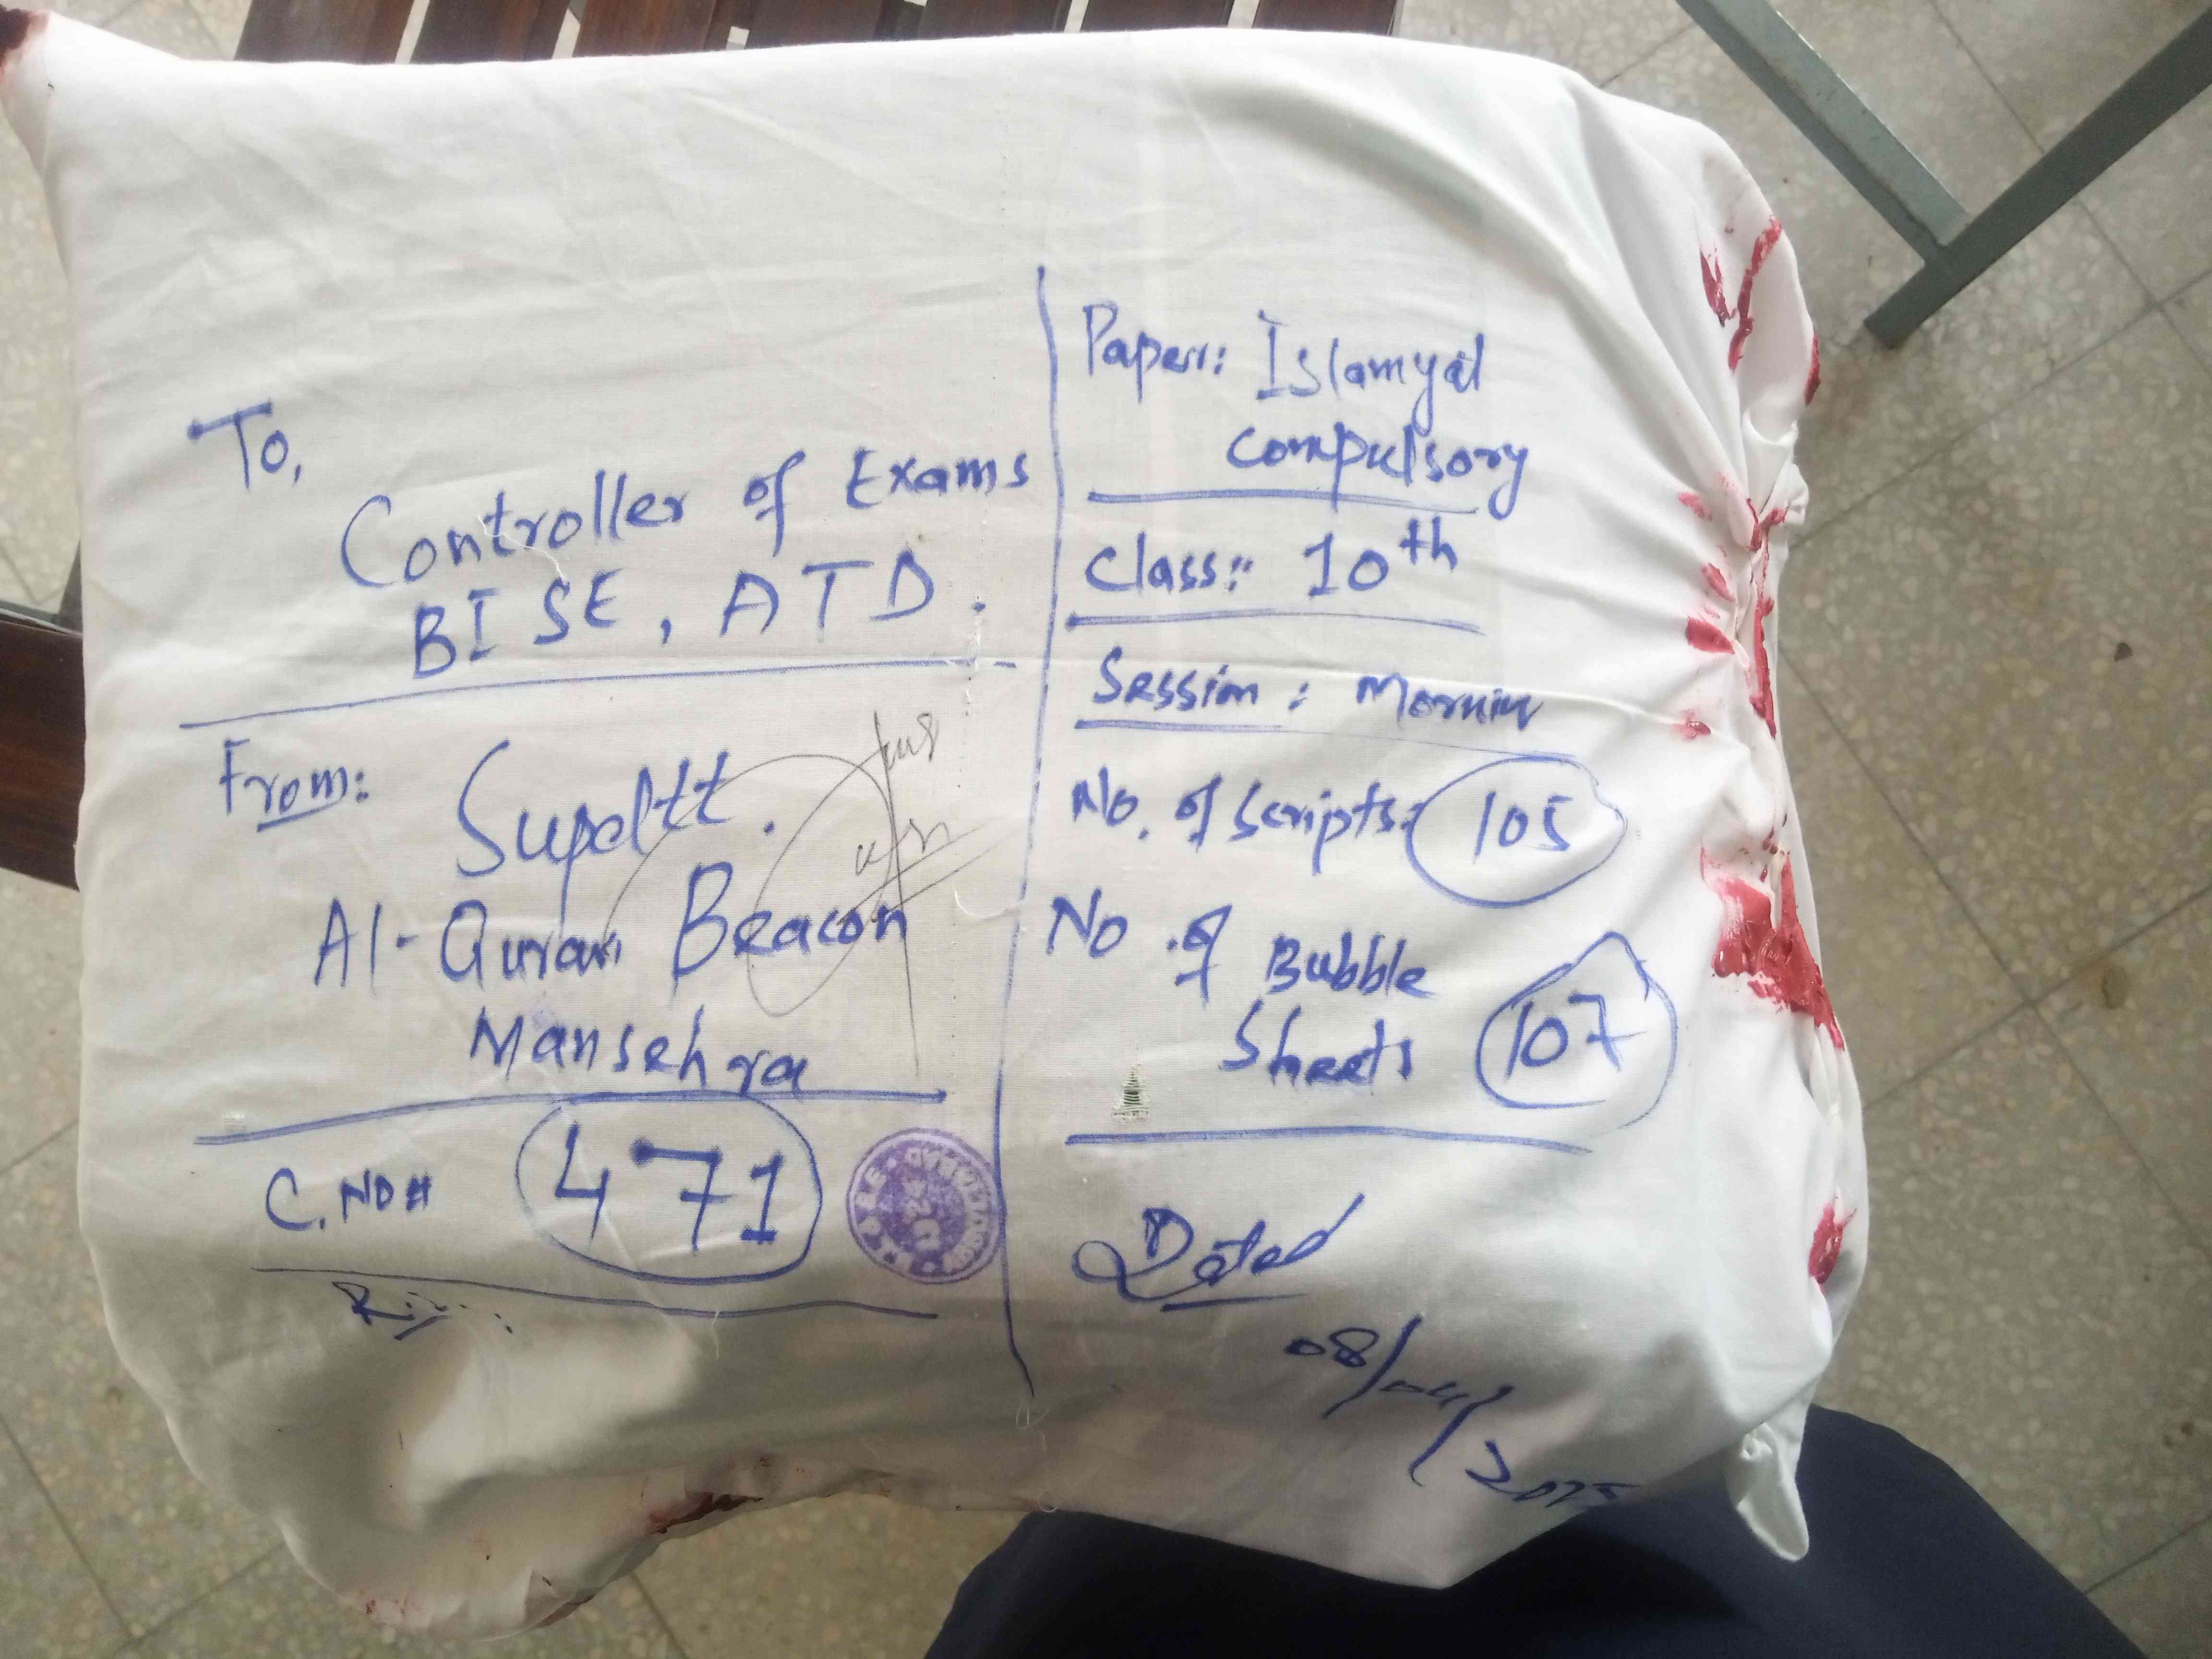 To,
Controller of Exams
BISE, ATD.
From: Supdtt.
Al-Quran Beacon
Mansehra
C. NO # 471
Paper: Islamyat
compulsory
Class: 10th
Session: Morning
No. of Scripts: 105
No. of Bubble
Sheets 107
Dated
08/04/2025